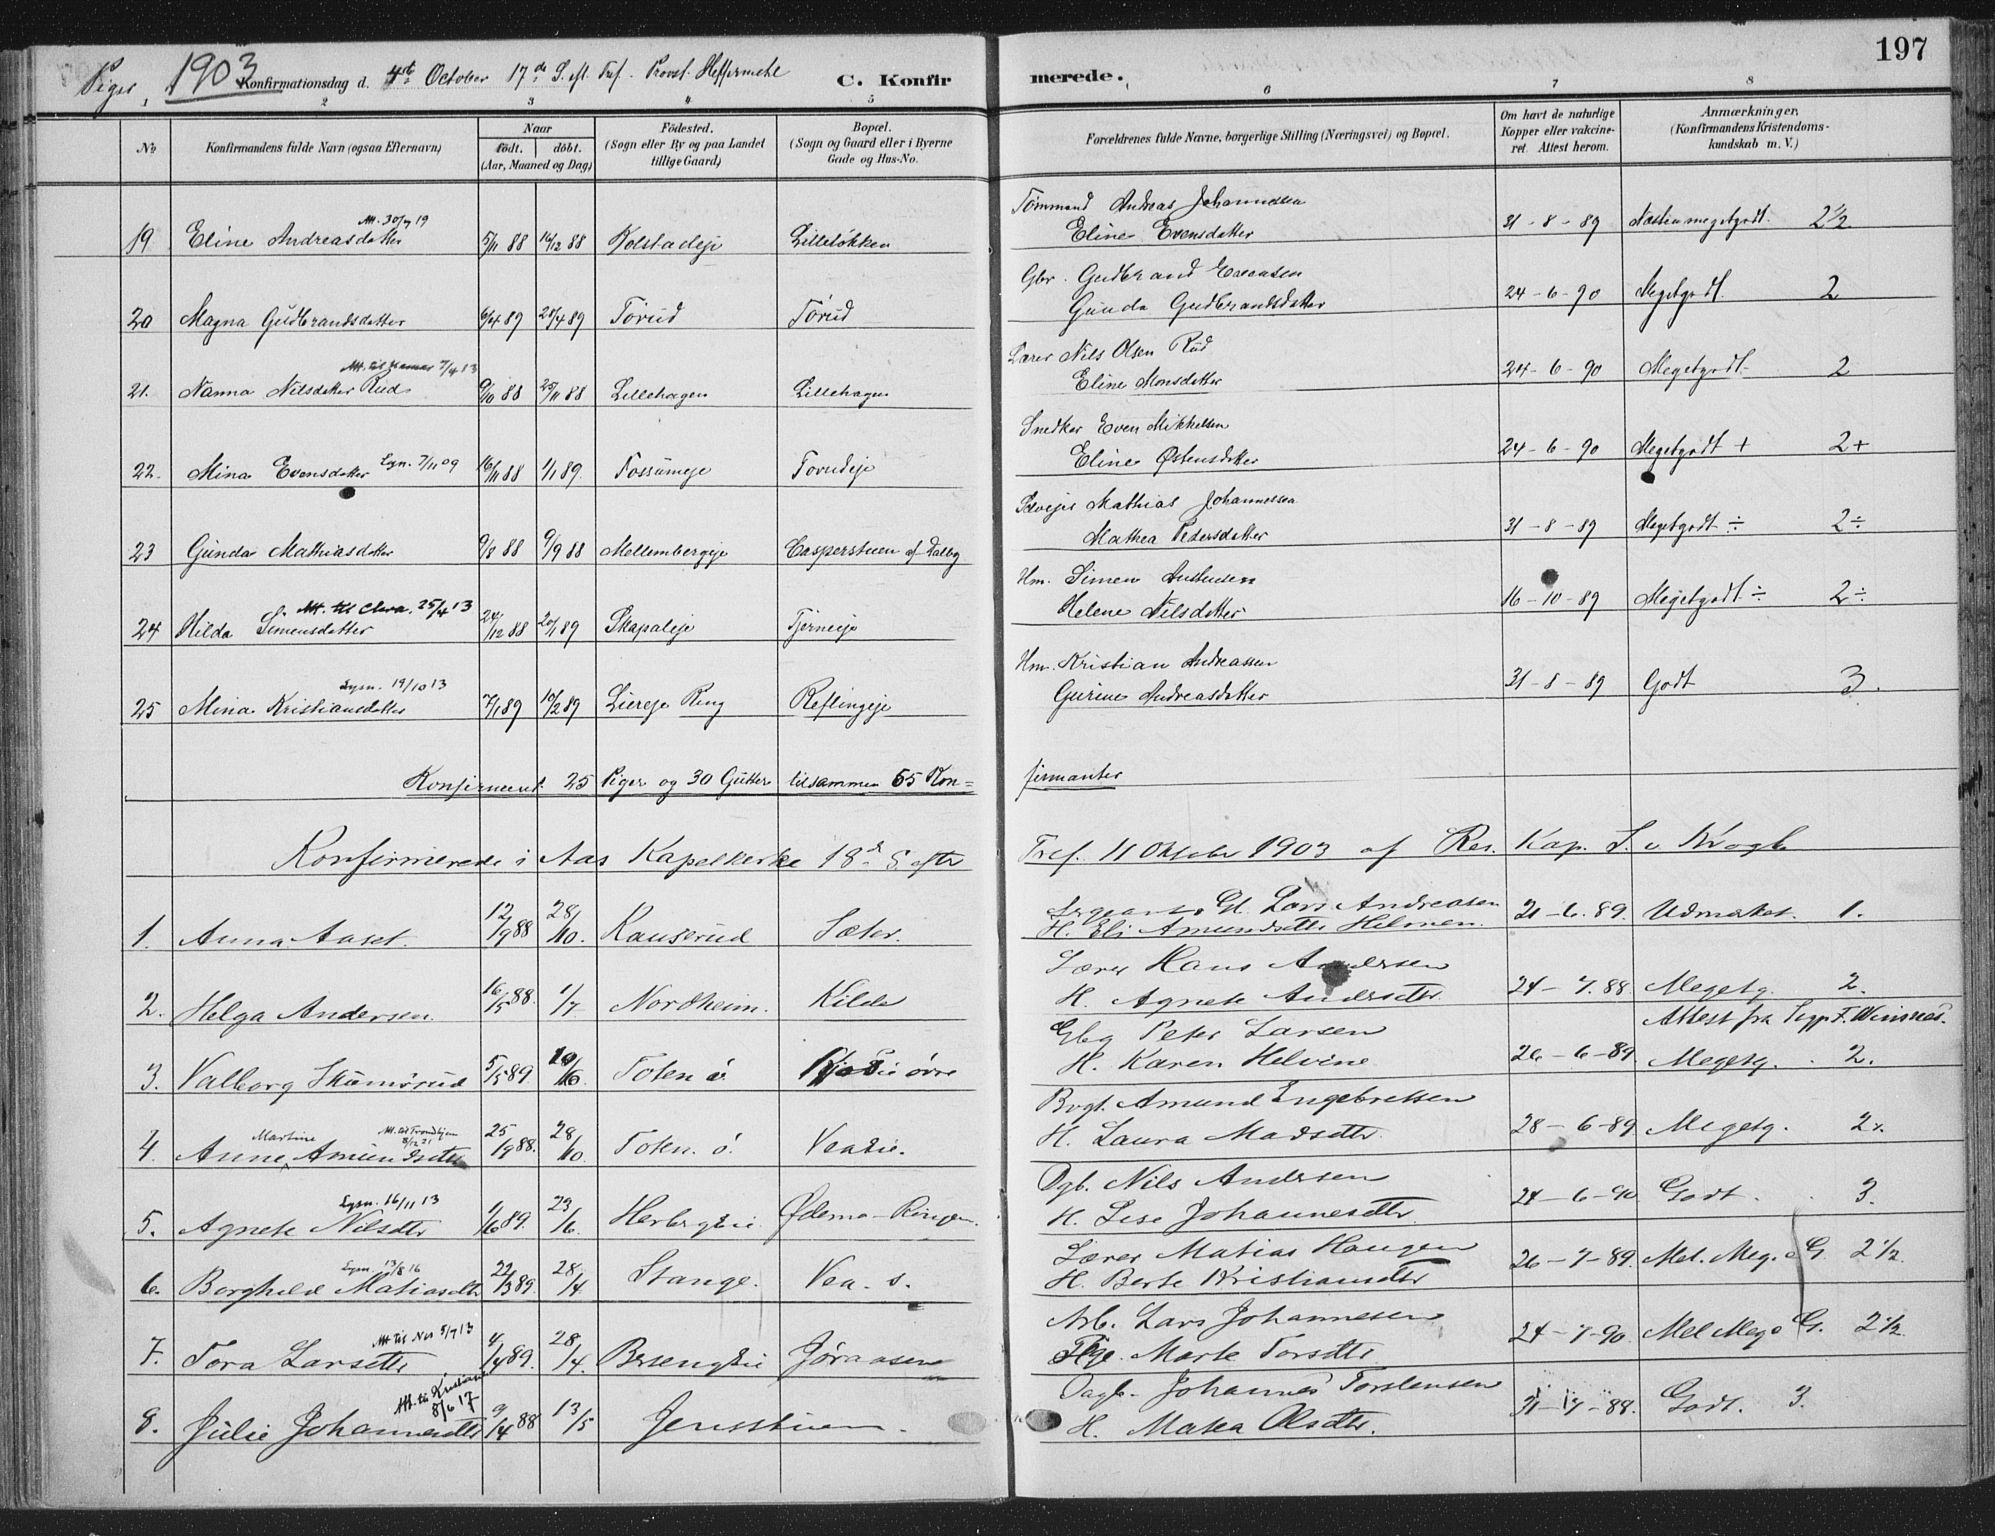 197
Piger, 1903 Konfirmationsdag d. 4de October 17de S. eft. Tref. Provst Heffermehl C. Konfirmerede.
1 2 3 4 5 6 7 8
No Konfirmandens fulde Navn (ogsaa Efternavn) Naar født. døbt. (Aar, Maaned og Dag) Fødested. (Sogn eller By og paa Landet tillige Gaard) Bopæl. (Sogn og Gaard eller i Byerne Gade og Hus-No. Forældrenes fulde Navne, borgerlige Stilling (Næringsvei) og Bopæl. Om havt de naturlige Kopper eller vakcineret. Attest herom. Anmærkninger. (Konfirmandens Kristendomskundskab m. V.)
Att. 30/9 19 Tømmermand Andreas Johannessen
19 Eline Andreasdatter 5/11 88 16/12 88 Kolstadeje Lilleløkken Eline Evensdatter 31-8-89 Næsten megetgodt. 2 1/2
Gbr. Gudbrand Evensen
20 Magna Gudbrandsdatter 6/4 89 28/4 89 Torud Torud Gunda Gudbrandsdatter 24-6-90 Megetgodt. 2
Att. til Hamar 7/4 13 Lærer Nils Olsen Rud
21. Nanna Nilsdatter Rud 9/10 88 25/11 88 Lillehagen Lillehagen Eline Monsdatter 24-6-90 Megetgodt. 2
Snedker Even Mikkelsen
22. Mina Evensdatter Lysn. 7/11 09 16/11 88 1/1 89. Fossumeje Torudeje Eline Østensdatter 24-6-90 Megetgodt + 2+
Mathias Johannessen
23 Gunda Mathiasdatter 9/8 88 9/9 88 Mellembergeje Casperstuen af Dalby Mathea Pedersdatter 31-8-89 Megetgodt ÷ 2÷
Att. til Elve. 25/4 13 Hm. Simen
24 Hilda Simensdatter 24/12 88 20/1 89 Skapaleje Tjerneeje Helene Nilsdatter 16-10-89 Megetgodt ÷ 2÷
Lysn. 19/10 13 Hm. Kristian Andreassen
25 Mina Kristiansdatter 7/1 89 10/2 89 Liereje Ring Reflingeje Gurine Andreasdatter 31-8-89 Godt 3.
Konfirmeret 25 Piger og 30 Gutter tilsammen 55 Konfirmanter
Konfirmerede i Aas Kapelkirke 18de S. eftr Tref. 11 Oktober 1903 af Res. Kap. S. v Krogh
Sergeant Gl. Lars Andreasen
1. Anna Aaset. 12/9 88 28/10. Kauserud Sæter. H. Eli Amundsdtr Helmen. 21-6.89. Udmærket. 1.
Lærer Hans Andersen
2. Helga Andersen. 16/5 88. 1/7 Nordheim. Kilde H. Agnete Andersdtr. 24-7.88 Megetg. 2.
Gbg Peter Larsen Attest fra Sogpr F. Winsnes.
3. Valborg Skumsrud 5/5 89. 10/6. Toten ø. øvre H. Karen Helvine 26-6-89 Megetg. 2.
Att. til Trondhjem 8/12 21 Bvgt. Amund Engebretsen
4. Anne Martine Amundsdtr 25/9 88. 28/10. Toten. ø. Veaeie. H. Laura Madsdtr. 28-6-89 Megetg. 2.
Lysn. 16/11 13 Dgb. Nils Andersen
5. Agnete Nilsdtr 1/6 89. 23/6. Herbergeie. Ødemo-Ringen. H. Lise Johannesdtr. 24-6-90 Godt. 3.
Lysn. 13/8 16 Lærer Matias Haugen
6. Borghild Matiasdtr 22/3 89. 28/4 Stange. Vea. s. H. Berte Kristiansdtr 26-7-89. Mel. Meg. o G. 2 1/2
Att til Nes 5/7 13 Arb. Lars Johannesen
7. Tora Larsdtr 4/4 89. 28/4. Besengeie Jøraasen Pige. Marte Torsdtr. 24-7-90. Mel Meg o G. 2 1/2.
Att. til Kristiania 8/6 17 Dagb. Johannes Torstensen
8. Julie Johannesdtr 9/4 88 13/5 Jensstuen. H. Matea Olsdtr. 31-7-88. Godt. 3.